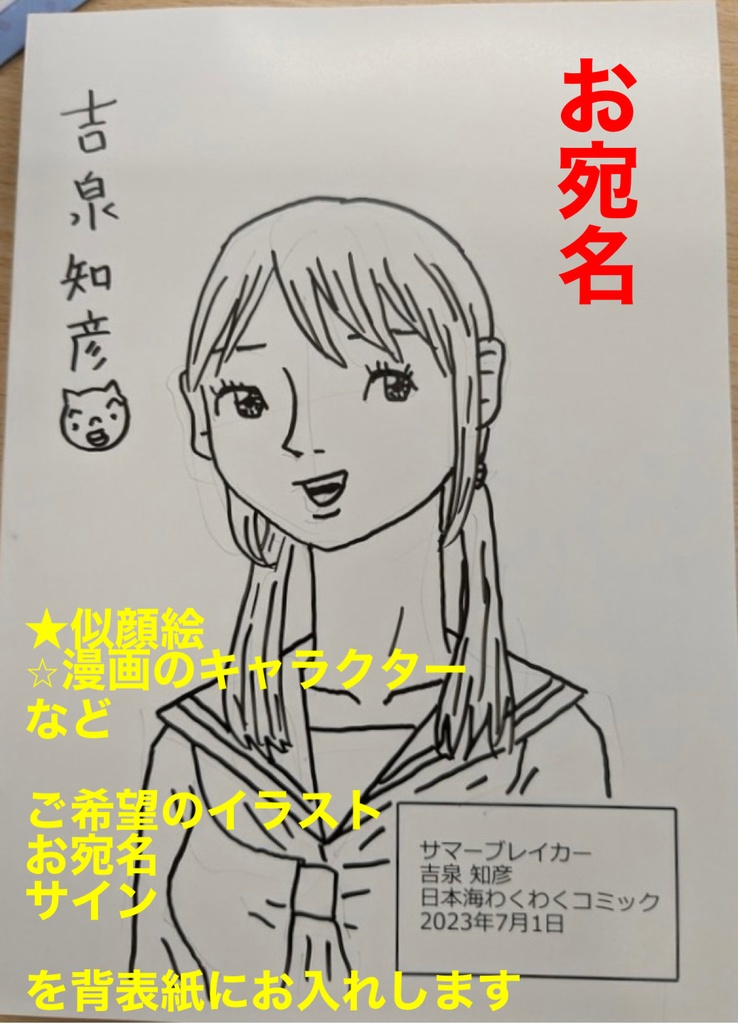 吉泉知彦
お宛名
★似顔絵
☆漫画のキャラクター
など
ご希望のイラスト
お宛名
サイン
を背表紙にお入れします
サマーブレイカー
吉泉 知彦
日本海わくわくコミック
2023年7月1日